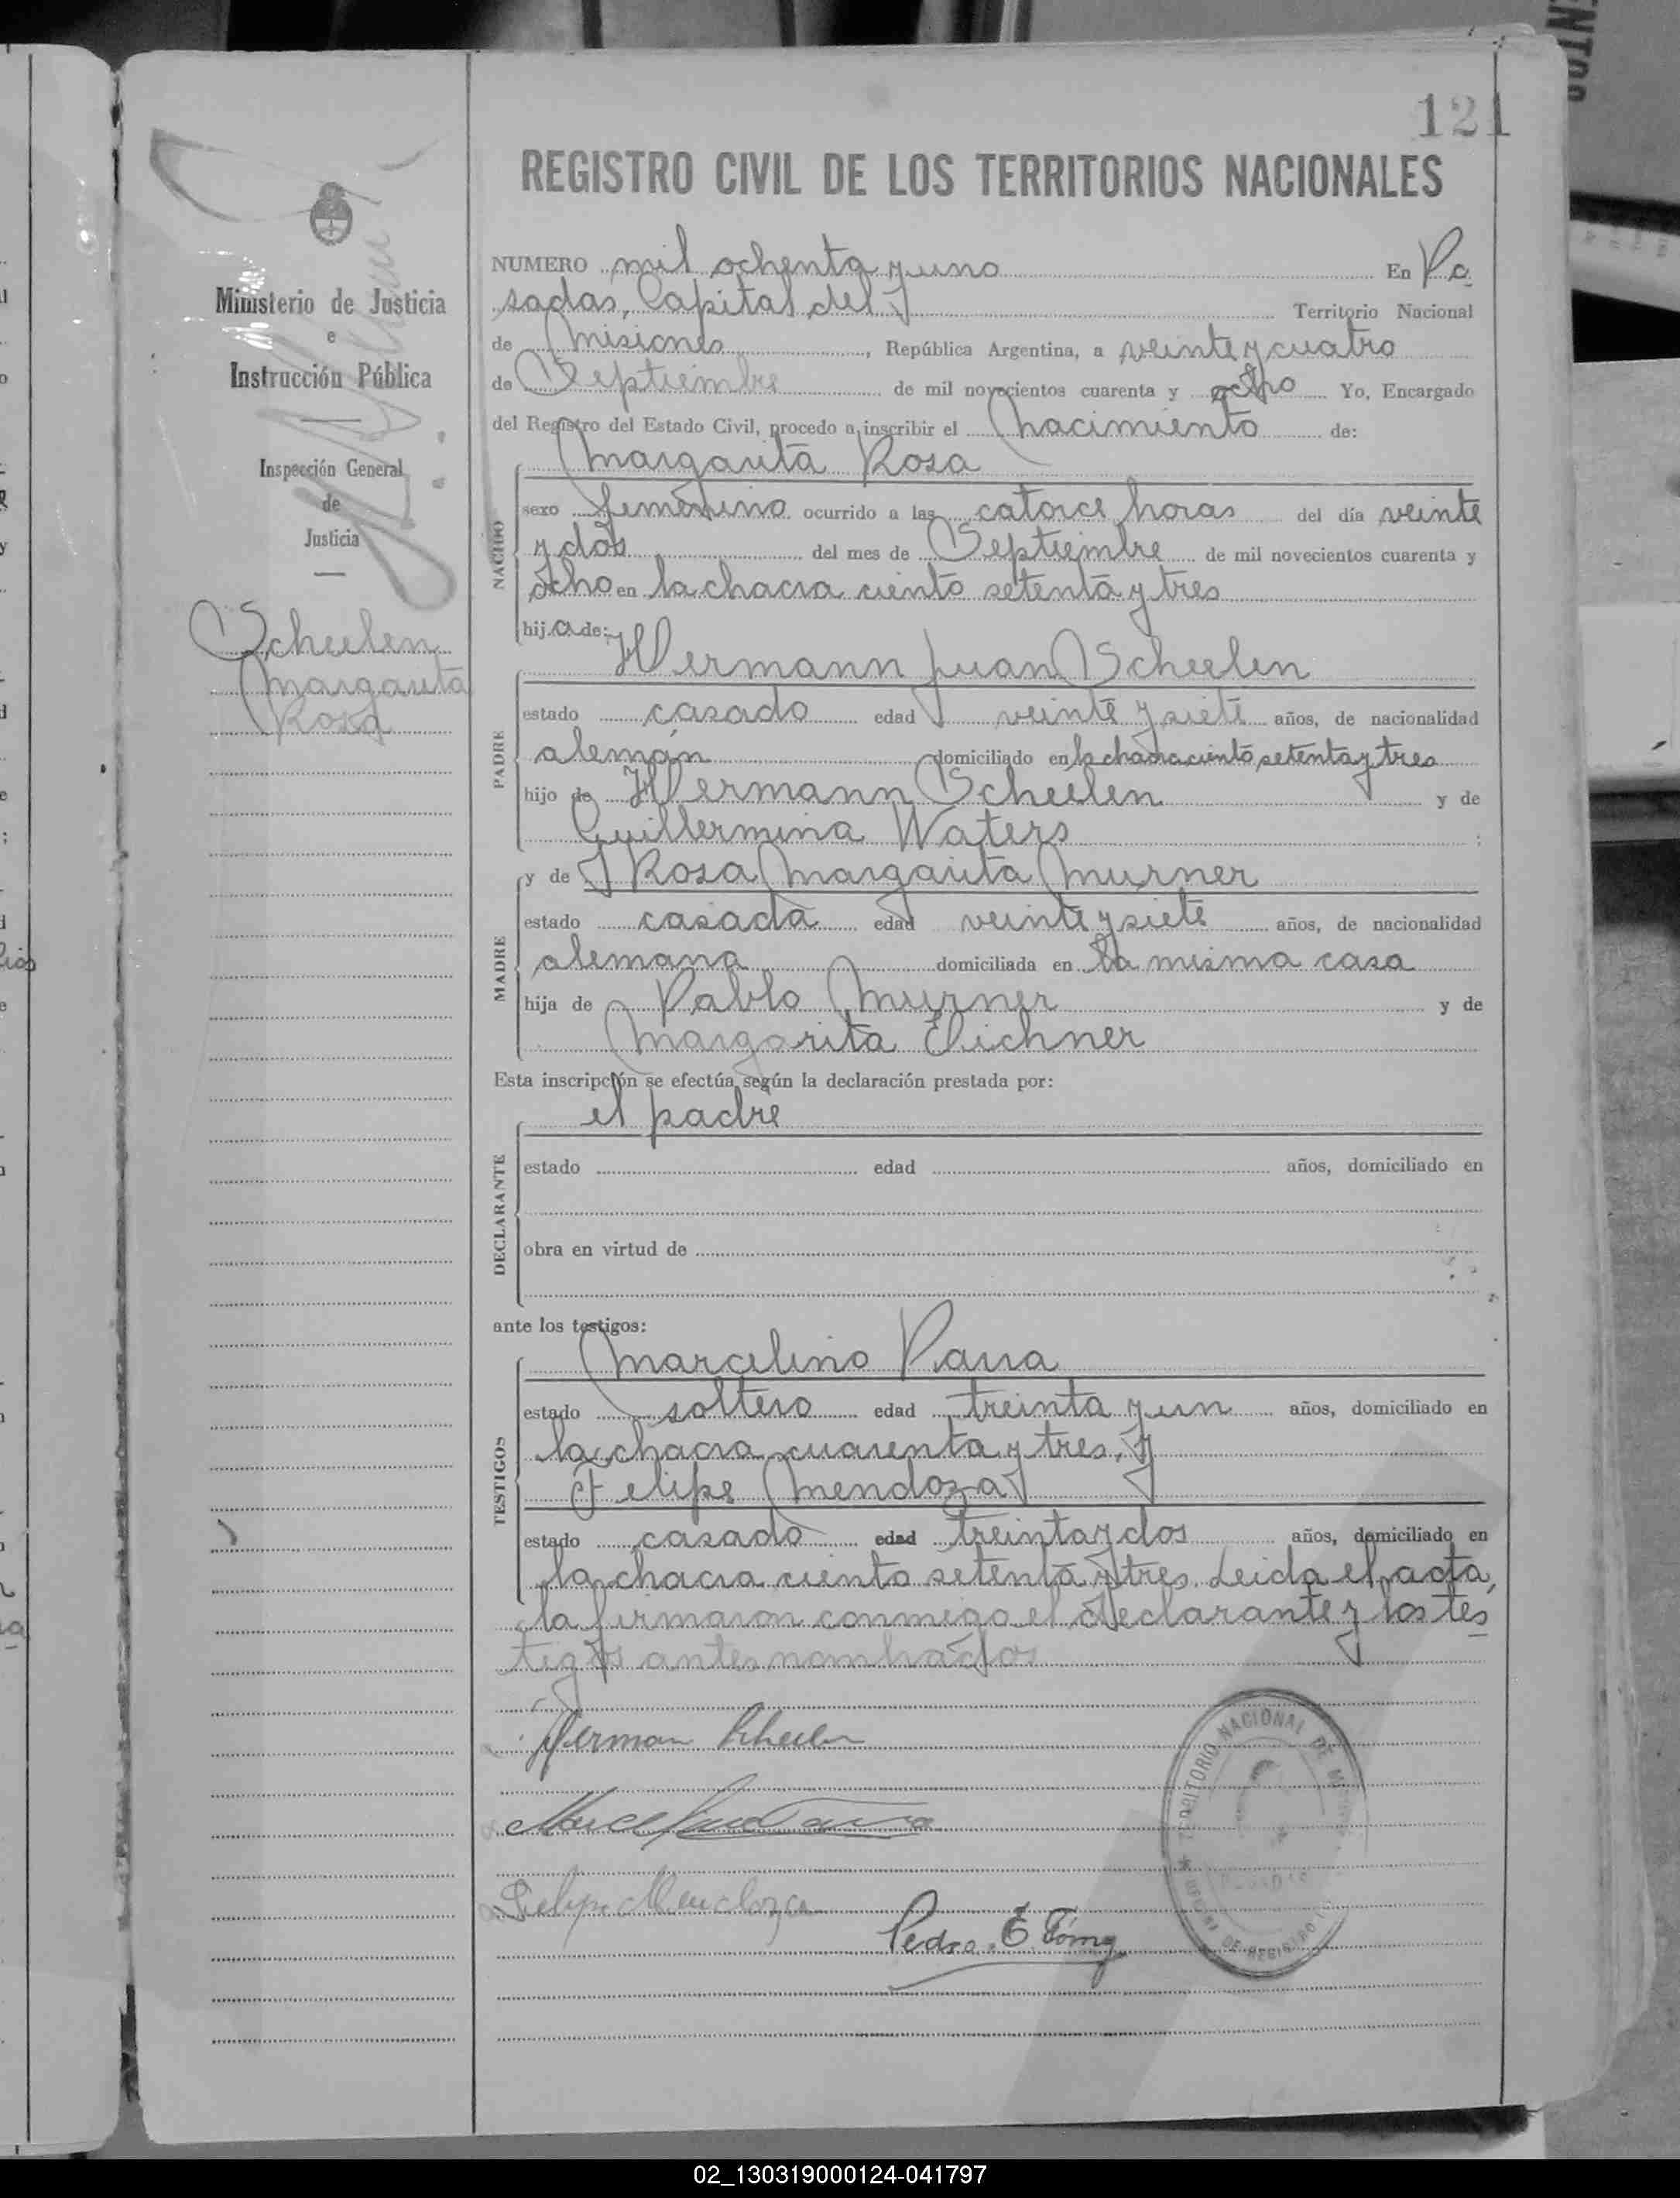 121
REGISTRO CIVIL DE LOS TERRITORIOS NACIONALES
Ministerio de Justicia
e
Instrucción Pública
Inspección General
de
Justicia
Scheelen
Margarita
Rosa
NUMERO mil ochenta y uno En Po
sadas, Capital del Territorio Nacional
de Misiones, República Argentina, a veinte y cuatro
de Septiembre de mil novecientos cuarenta y ocho Yo, Encargado
del Registro del Estado Civil, procedo a inscribir el nacimiento de:
NACIDO
Margarita Rosa
sexo femenino ocurrido a las catorce horas del día veinte
y dos del mes de Septiembre de mil novecientos cuarenta y
ocho en la chacra ciento setenta y tres
hija de:
PADRE
Hermann Juan Scheelen
estado casado edad veinte y siete años, de nacionalidad
alemán domiciliado en la chacra ciento setenta y tres
hijo de Hermann Scheelen y de
Guillermina Waters
MADRE
y de Rosa Margarita Murner
estado casada edad veinte y siete años, de nacionalidad
alemana domiciliada en la misma casa
hija de Pablo Murner y de
Margarita Elichner
Esta inscripción se efectúa según la declaración prestada por:
DECLARANTE
el padre
estado edad años, domiciliado en
obra en virtud de
ante los testigos:
TESTIGOS
Marcelino Parra
estado soltero edad treinta y un años, domiciliado en
la chacra cuarenta y tres, y
Felipe Mendoza
estado casado edad treinta y dos años, domiciliado en
la chacra ciento setenta y tres. Leida el acta,
la firmaron conmigo el declarante y los tes
tigos antes nombrados
Herman Scheelen
Marcelino Parra
Felipe Mendoza
Pedro E. Gómez
TERRITORIO NACIONAL DE MISIONES
02_130319000124-041797